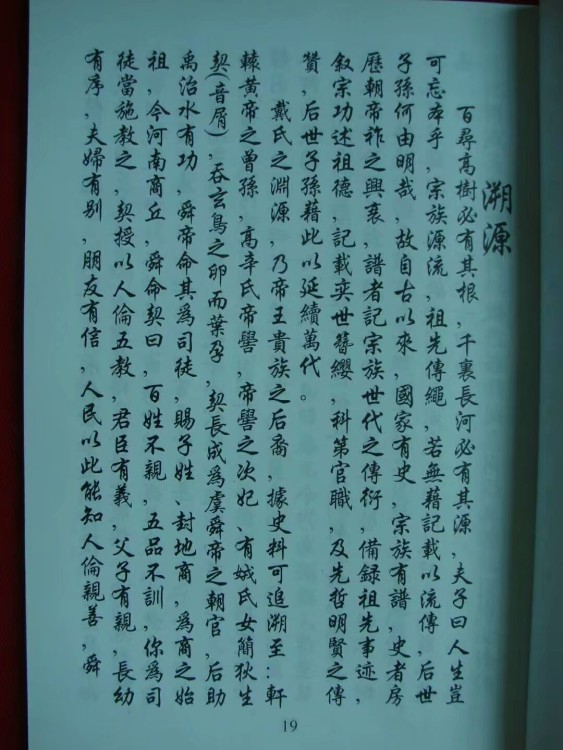 溯源
百尋高樹必有其根，千裏長河必有其源，夫子曰人生豈
可忘本乎，宗族源流，祖先傳繩，若無藉記載以流傳，后世
子孫何由明哉，故自古以來，國家有史，宗族有譜，史者房
歷朝帝祚之興衰，譜者記宗族世代之傳衍，備録祖先事迹，
叙宗功述祖德，記載奕世簪纓，科第官職，及先哲明賢之傳
贊，后世子孫藉此以延續萬代。
戴氏之淵源，乃帝王貴族之后裔，據史料可追溯至：軒
轅黄帝之曾孫，高辛氏帝嚳，帝嚳之次妃、有娀氏女簡狄生
契(音屑)，吞玄鳥之卵而葉孕，契長成爲虞舜帝之朝官，后助
禹治水有功，舜帝命其爲司徒，賜子姓、封地商，爲商之始
祖，今河南商丘，舜命契曰，百姓不親，五品不訓，你爲司
徒當施教之，契授以人倫五教，君臣有義，父子有親，長幼
有序，夫婦有别，朋友有信，人民以此能知人倫親善，舜
19